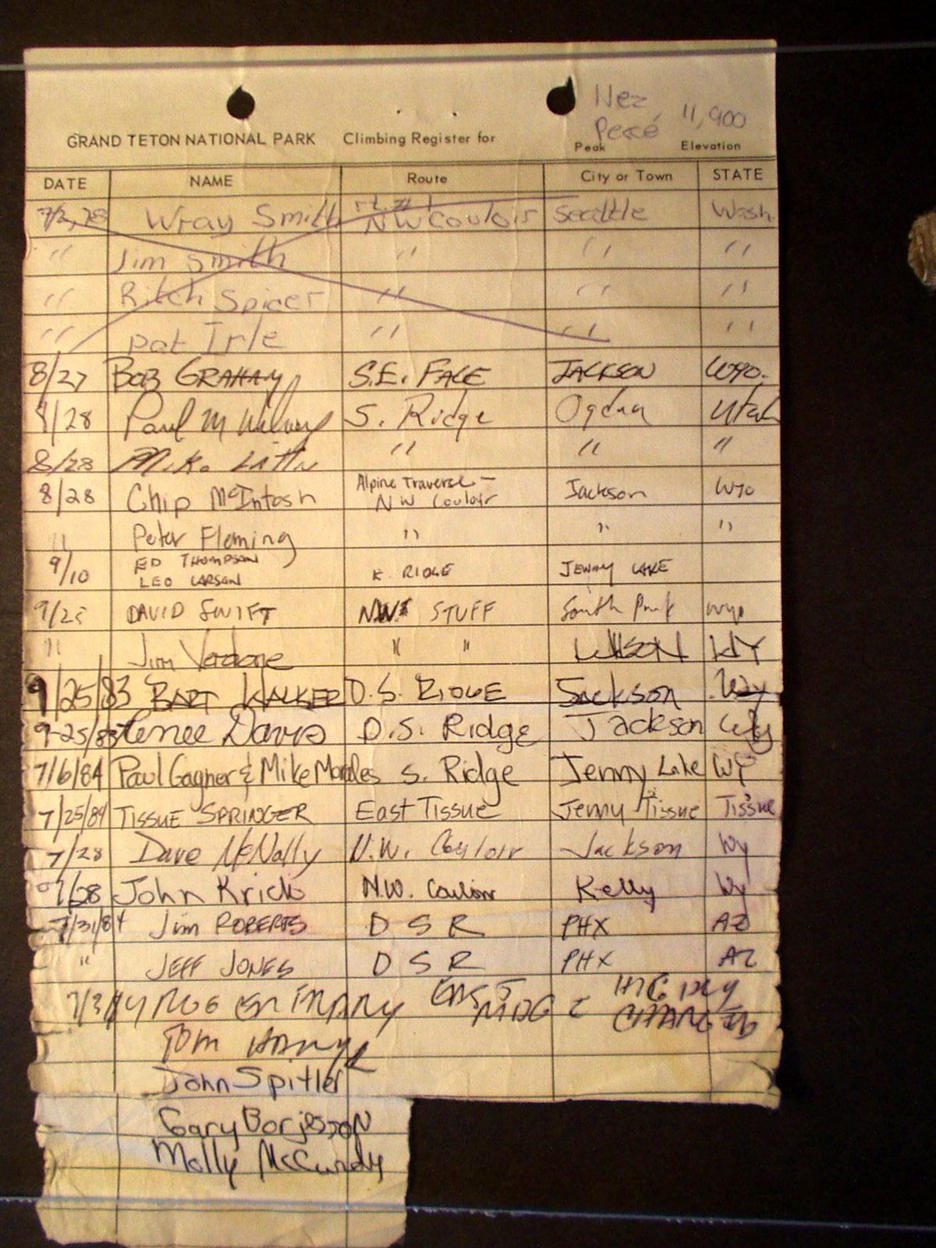 Nez
Percé 11,900
GRAND TETON NATIONAL PARK Climbing Register for Peak Elevation
DATE NAME Route City or Town STATE
7/2,78 Wray Smith rt. #1 NW Couloir Seattle Wash
" Jim Smith " " "
" Ritch Spicer " " "
" Pat Irle " " "
8/27 BOB GRAHAM S.E. FACE JACKSON WYO.
8/28 Paul M S. Ridge Ogden Utah
8/28 Mike " " "
8/28 Chip McIntosh Alpine Traverse - NW Couloir Jackson WYO
" Peter Fleming " " "
9/10 ED THOMPSON
LEO LARSON RIDGE JENNY LAKE
DAVID SWIFT NW STUFF South Park WYO
" Jim Verdone " " WILSON WY
9/25/83 BART WALKER D.S. RIDGE Jackson Wy
9-25/83 Renee Davis D.S. Ridge Jackson Wy
7/6/84 Paul Gagner & Mike Morales S. Ridge Jenny Lake WY
7/25/84 TISSUE SPRINGER East Tissue Jenny Tissue Tissue
7/28 Dave McNally N.W. Couloir Jackson Wy
7/28 John Krick N.W. Couloir Kelly Wy
7/31/84 Jim ROBERTS D S R PHX AZ
" JEFF JONES D S R PHX AZ
EAST RIDGE
Tom
John Spitler
Gary Borjesson
Molly McCurdy